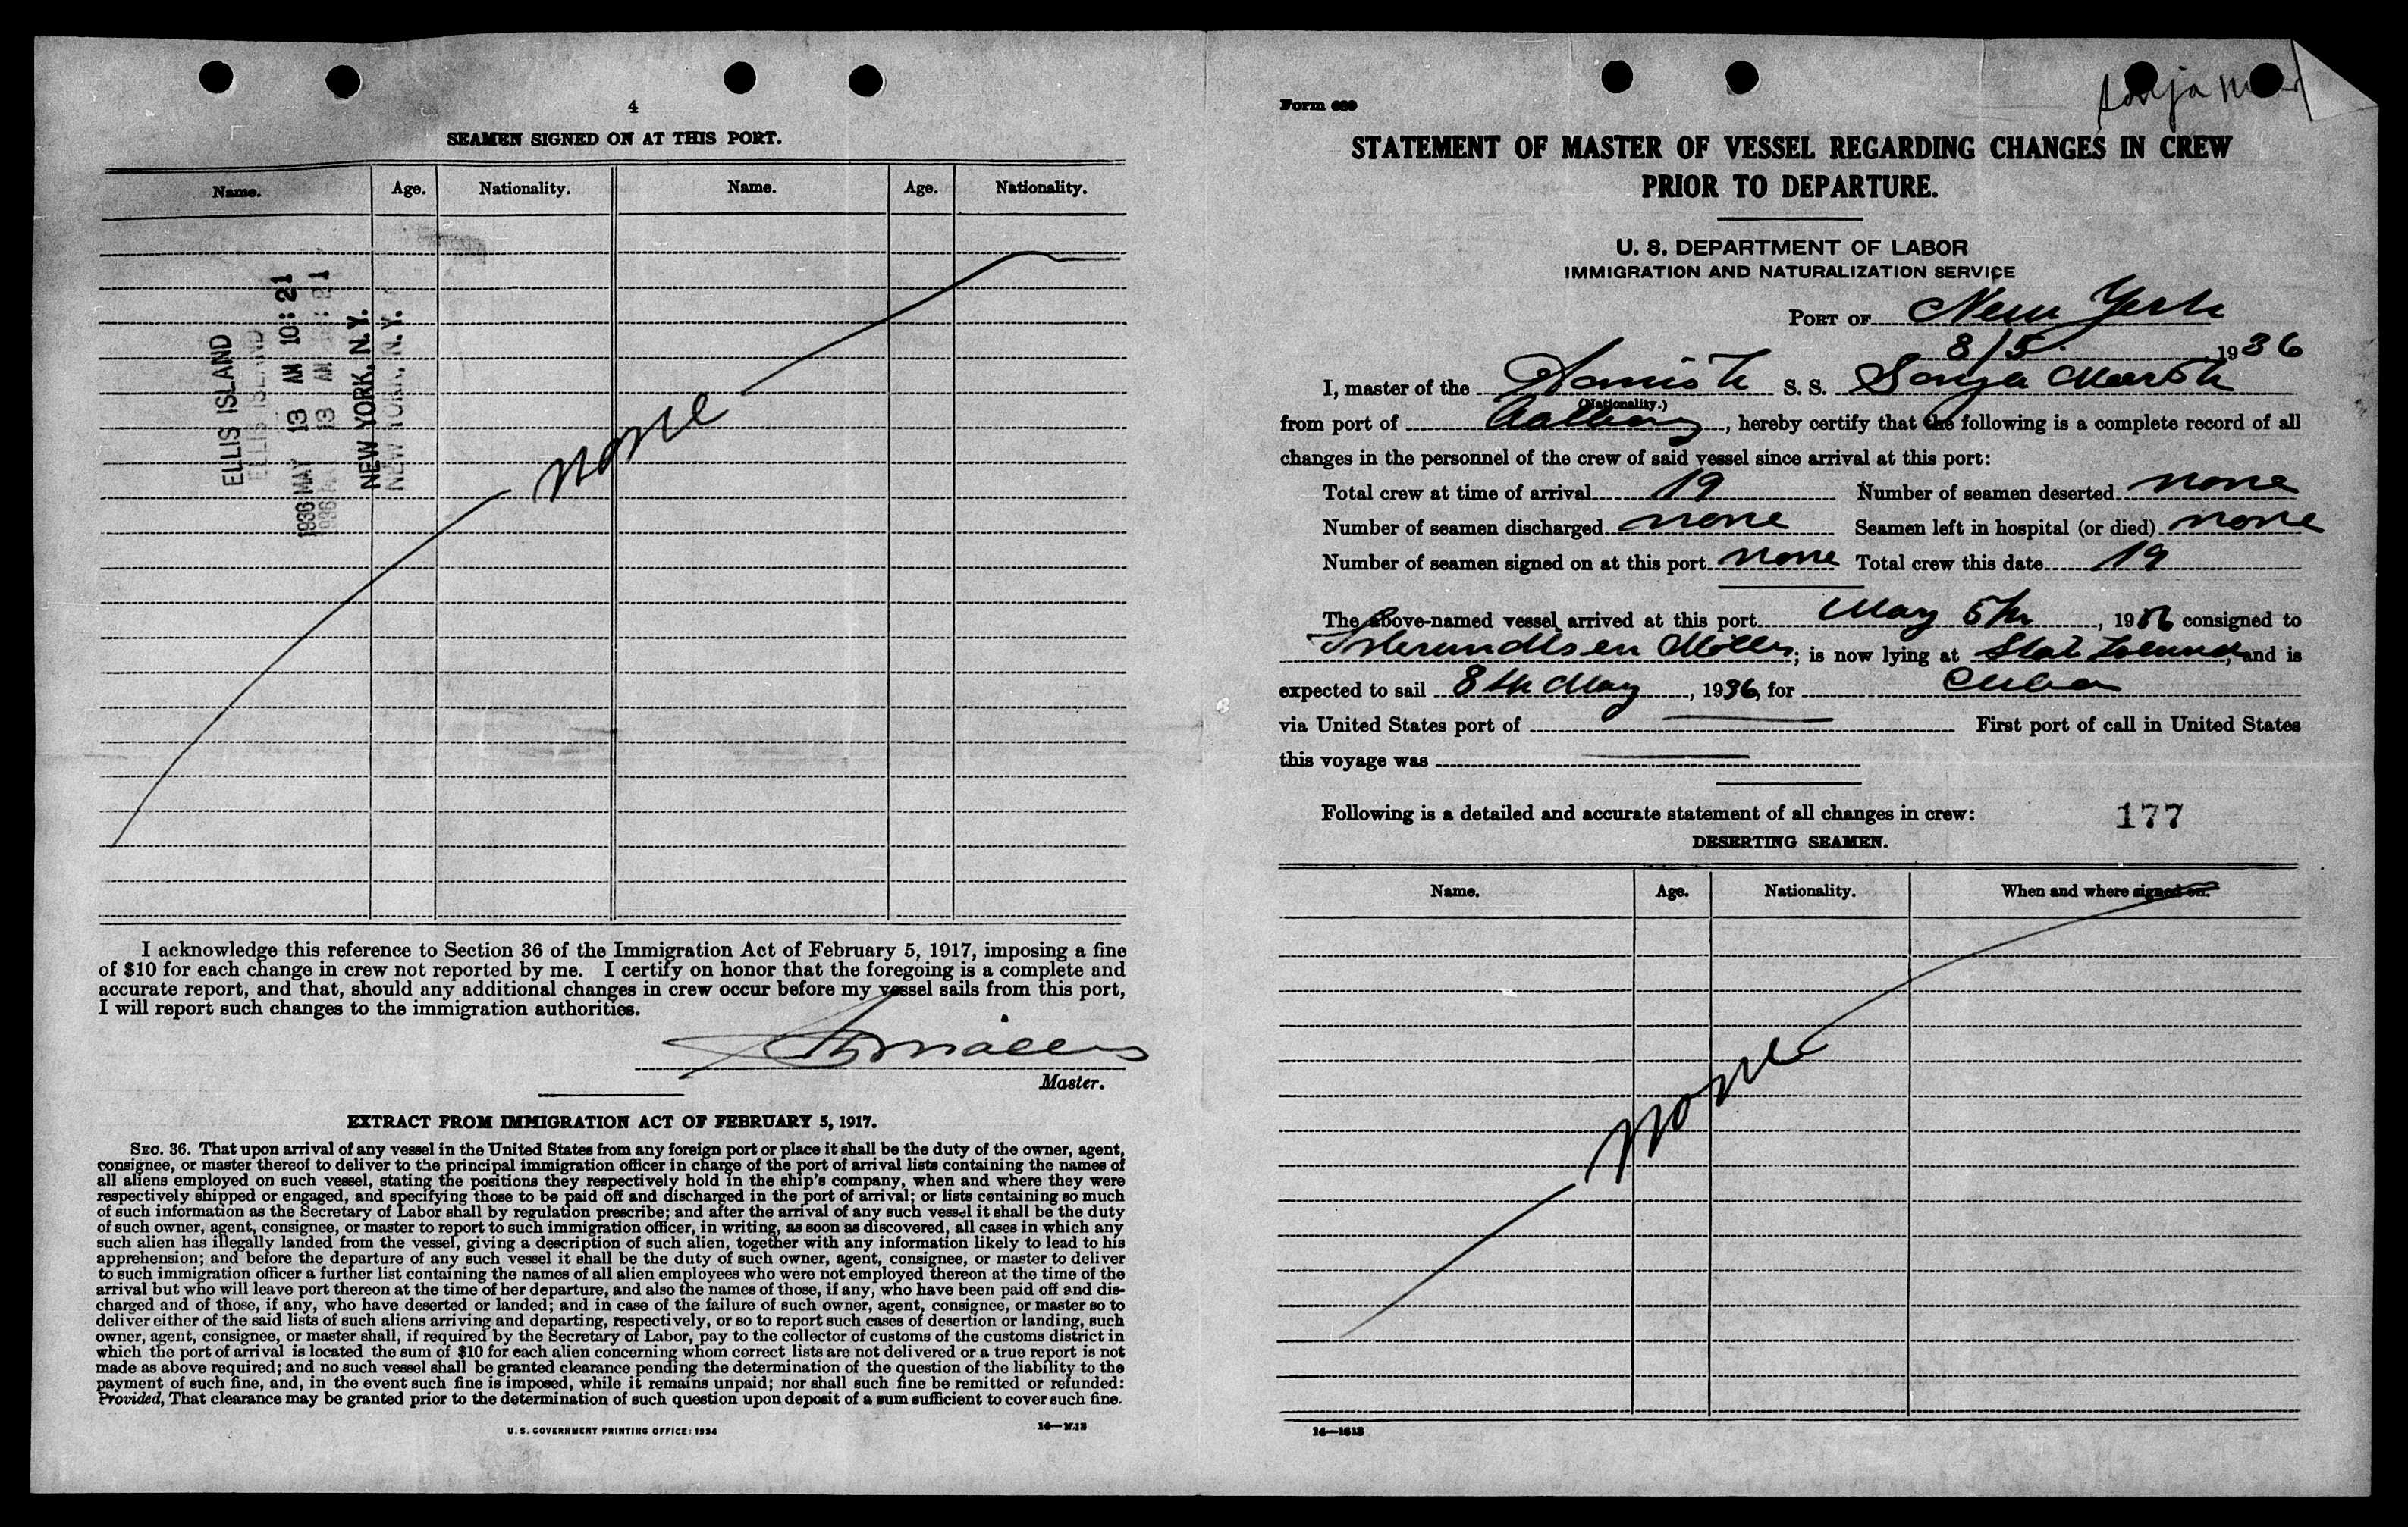 4
SEAMEN SIGNED ON AT THIS PORT.
Name. Age. Nationality. Name. Age. Nationality.
ELLIS ISLAND
1936 MAY 13 AM 10:21
NEW YORK, N.Y.
none
I acknowledge this reference to Section 36 of the Immigration Act of February 5, 1917, imposing a fine
of $10 for each change in crew not reported by me. I certify on honor that the foregoing is a complete and
accurate report, and that, should any additional changes in crew occur before my vessel sails from this port,
I will report such changes to the immigration authorities.
Master.
EXTRACT FROM IMMIGRATION ACT OF FEBRUARY 5, 1917.
SEC. 36. That upon arrival of any vessel in the United States from any foreign port or place it shall be the duty of the owner, agent,
consignee, or master thereof to deliver to the principal immigration officer in charge of the port of arrival lists containing the names of
all aliens employed on such vessel, stating the positions they respectively hold in the ship's company, when and where they were
respectively shipped or engaged, and specifying those to be paid off and discharged in the port of arrival; or lists containing so much
of such information as the Secretary of Labor shall by regulation prescribe; and after the arrival of any such vessel it shall be the duty
of such owner, agent, consignee, or master to report to such immigration officer, in writing, as soon as discovered, all cases in which any
such alien has illegally landed from the vessel, giving a description of such alien, together with any information likely to lead to his
apprehension; and before the departure of any such vessel it shall be the duty of such owner, agent, consignee, or master to deliver
to such immigration officer a further list containing the names of all alien employees who were not employed thereon at the time of the
arrival but who will leave port thereon at the time of her departure, and also the names of those, if any, who have been paid off and dis-
charged and of those, if any, who have deserted or landed; and in case of the failure of such owner, agent, consignee, or master so to
deliver either of the said lists of such aliens arriving and departing, respectively, or so to report such cases of desertion or landing, such
owner, agent, consignee, or master shall, if required by the Secretary of Labor, pay to the collector of customs of the customs district in
which the port of arrival is located the sum of $10 for each alien concerning whom correct lists are not delivered or a true report is not
made as above required; and no such vessel shall be granted clearance pending the determination of the question of the liability to the
payment of such fine, and, in the event such fine is imposed, while it remains unpaid; nor shall such fine be remitted or refunded:
Provided, That clearance may be granted prior to the determination of such question upon deposit of a sum sufficient to cover such fine.
U. S. GOVERNMENT PRINTING OFFICE: 1934
Sonja
Form 689
STATEMENT OF MASTER OF VESSEL REGARDING CHANGES IN CREW
PRIOR TO DEPARTURE.
U. S. DEPARTMENT OF LABOR
IMMIGRATION AND NATURALIZATION SERVICE
PORT OF New York
8/5. 1936
I, master of the Danish S. S. Sonja Mærsk
(Nationality.)
from port of Aalborg, hereby certify that the following is a complete record of all
changes in the personnel of the crew of said vessel since arrival at this port:
Total crew at time of arrival 19 Number of seamen deserted none
Number of seamen discharged none Seamen left in hospital (or died) none
Number of seamen signed on at this port none Total crew this date 19
The above-named vessel arrived at this port May 5th, 1936 consigned to
Møller; is now lying at Stat Island, and is
expected to sail 8th May, 1936, for Cuba
via United States port of First port of call in United States
this voyage was
Following is a detailed and accurate statement of all changes in crew: 177
DESERTING SEAMEN.
Name. Age. Nationality. When and where signed on.
none
14—1613